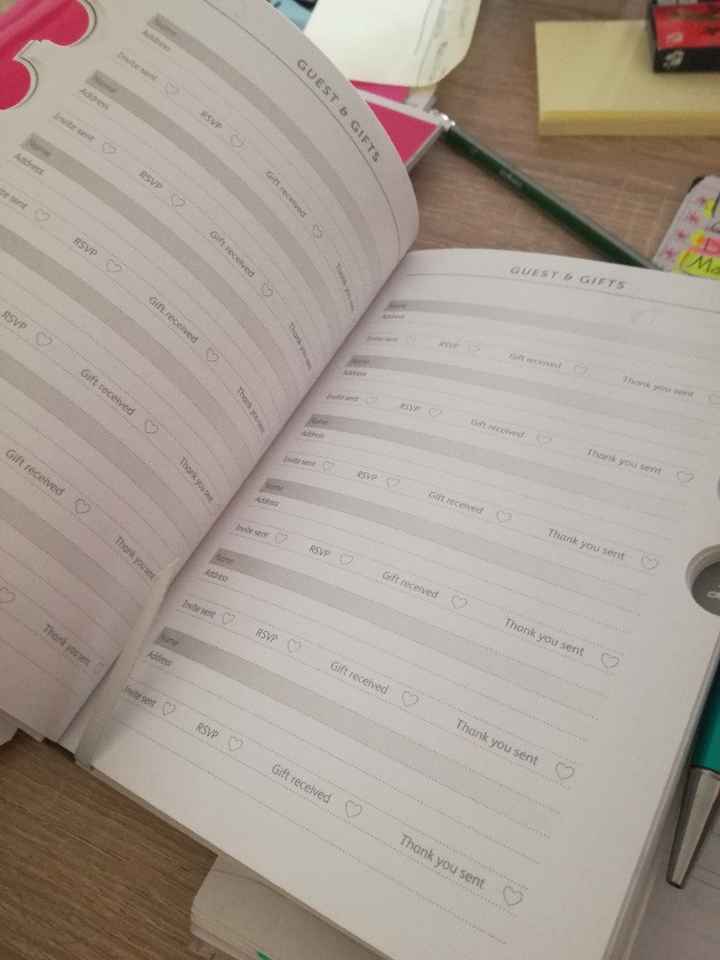 GUEST & GIFTS
Name
Address
Invite sent RSVP Gift received Thank you
Name
Address
Invite sent RSVP Gift received Thank you
Name
Address
sent RSVP Gift received Thank you
RSVP Gift received Thank you
Gift received Thank you sent
Thank you sent
GUEST & GIFTS
Name
Address
Invite sent RSVP Gift received Thank you sent
Name
Address
Invite sent RSVP Gift received Thank you sent
Name
Address
Invite sent RSVP Gift received Thank you sent
Name
Address
Invite sent RSVP Gift received Thank you sent
Name
Address
Invite sent RSVP Gift received Thank you sent
Name
Address
Invite sent RSVP Gift received Thank you sent